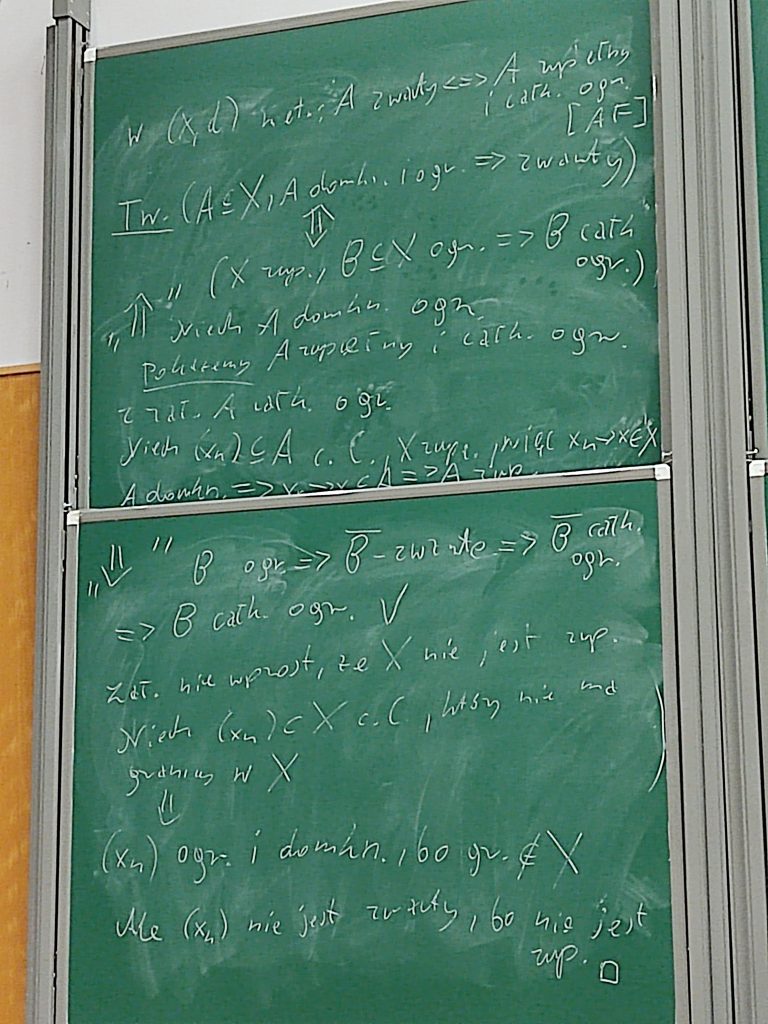 W (X,d) met.: A zwarty <=> A zupełny
i całk. ogr.
[AF]
Tw. (A ⊆ X, A domkn. i ogr. => zwarty)
⇕
"⇑" (X zup., B ⊆ X ogr. => B całk
ogr.)
Niech A domkn. ogr.
Pokażemy A zupełny i całk. ogr.
z zał. A całk. ogr.
Niech (xₙ) ⊆ A c. C., X zup., więc xₙ → x ∈ X
A domkn. => xₙ → x ∈ A => A zup.
"⇓" B ogr. => B̅ - zwarte => B̅ całk.
ogr.
=> B całk. ogr. √
Zał. nie wprost, że X nie jest zup.
Niech (xₙ) ⊂ X c. C., który nie ma
granicy w X
⇓
(xₙ) ogr. i domkn., bo gr. ∉ X
Ale (xₙ) nie jest zwarty, bo nie jest
zup. □